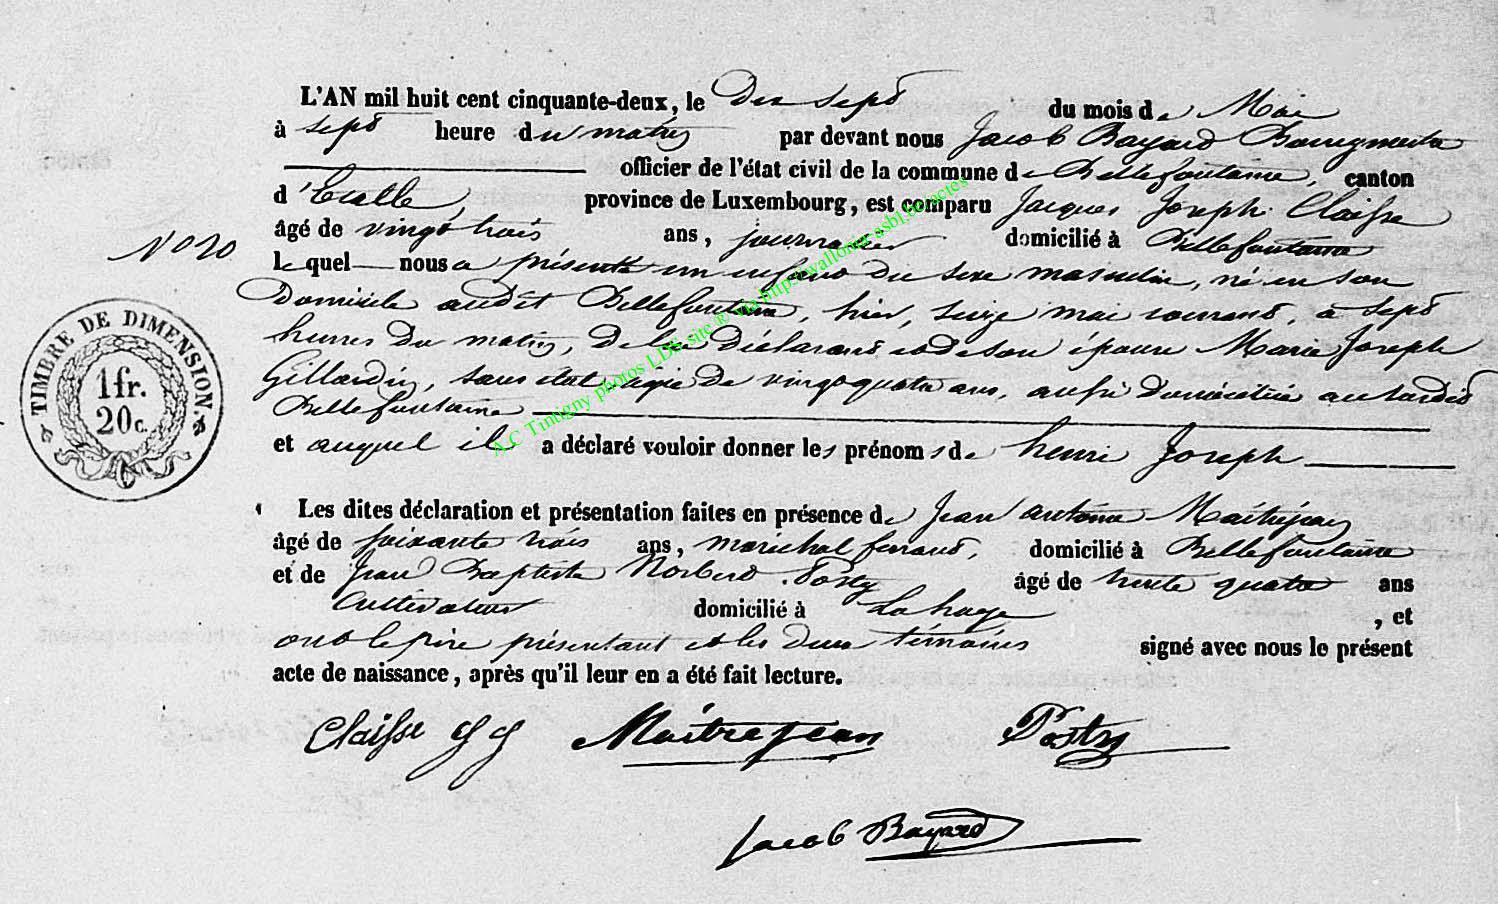 L'AN mil huit cent cinquante-deux, le dix sept du mois de Mai
à sept heure du matin par devant nous Jacob Bayard Bourgmestre
officier de l'état civil de la commune de Bellefontaine, canton
d'Etalle, province de Luxembourg, est comparu Jacques Joseph Claisse
âgé de vingt trois ans, journalier domicilié à Bellefontaine
No 20
lequel nous a présenté un enfant du sexe masculin, né en son
Domicile audit Bellefontaine, hier, seize mai courant, à sept
heures du matin, de lui Déclarant et de son épouse Marie Joseph
Gillardin, sans état agée de vingt quatre ans, aussi domiciliée au susdit
Bellefontaine
et auquel il a déclaré vouloir donner les prénoms de henri Joseph
Les dites déclaration et présentation faites en présence de Jean antoine Maitrejean
âgé de soixante trois ans, maréchal ferrant, domicilié à Bellefontaine
et de Jean Baptiste Norbert Posty âgé de trente quatre ans
Cultivateur domicilié à Lahage, et
ont le père présentant et les deux témoins signé avec nous le présent
acte de naissance, après qu'il leur en a été fait lecture.
Claisse J J Maitrejean Posty
Jacob Bayard
TIMBRE DE DIMENSION.
1fr.
20c.
A.C Tintigny photos LDS site ® via http://wallonia-asbl.be/actes